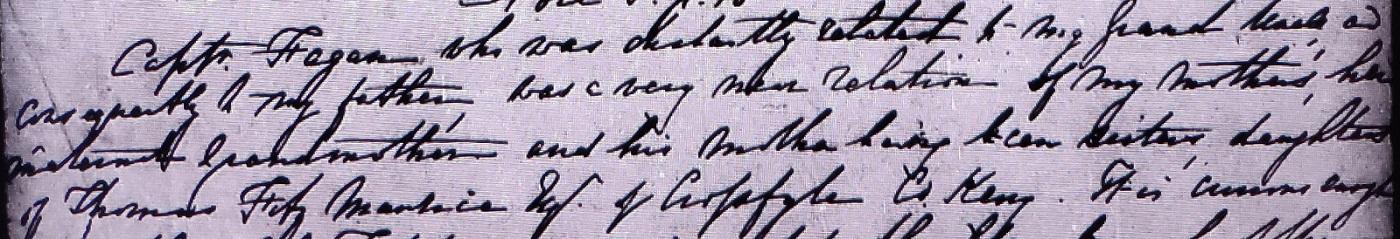 Captn. Fagan who was distantly related to my Grand Uncle and
consequently to my father, was a very near relation of my mother's, her
maternal Grandmother and his Mother having been sisters, daughters
of Thomas Fitz Maurice Esq. of Co. Kerry. It is curious enough